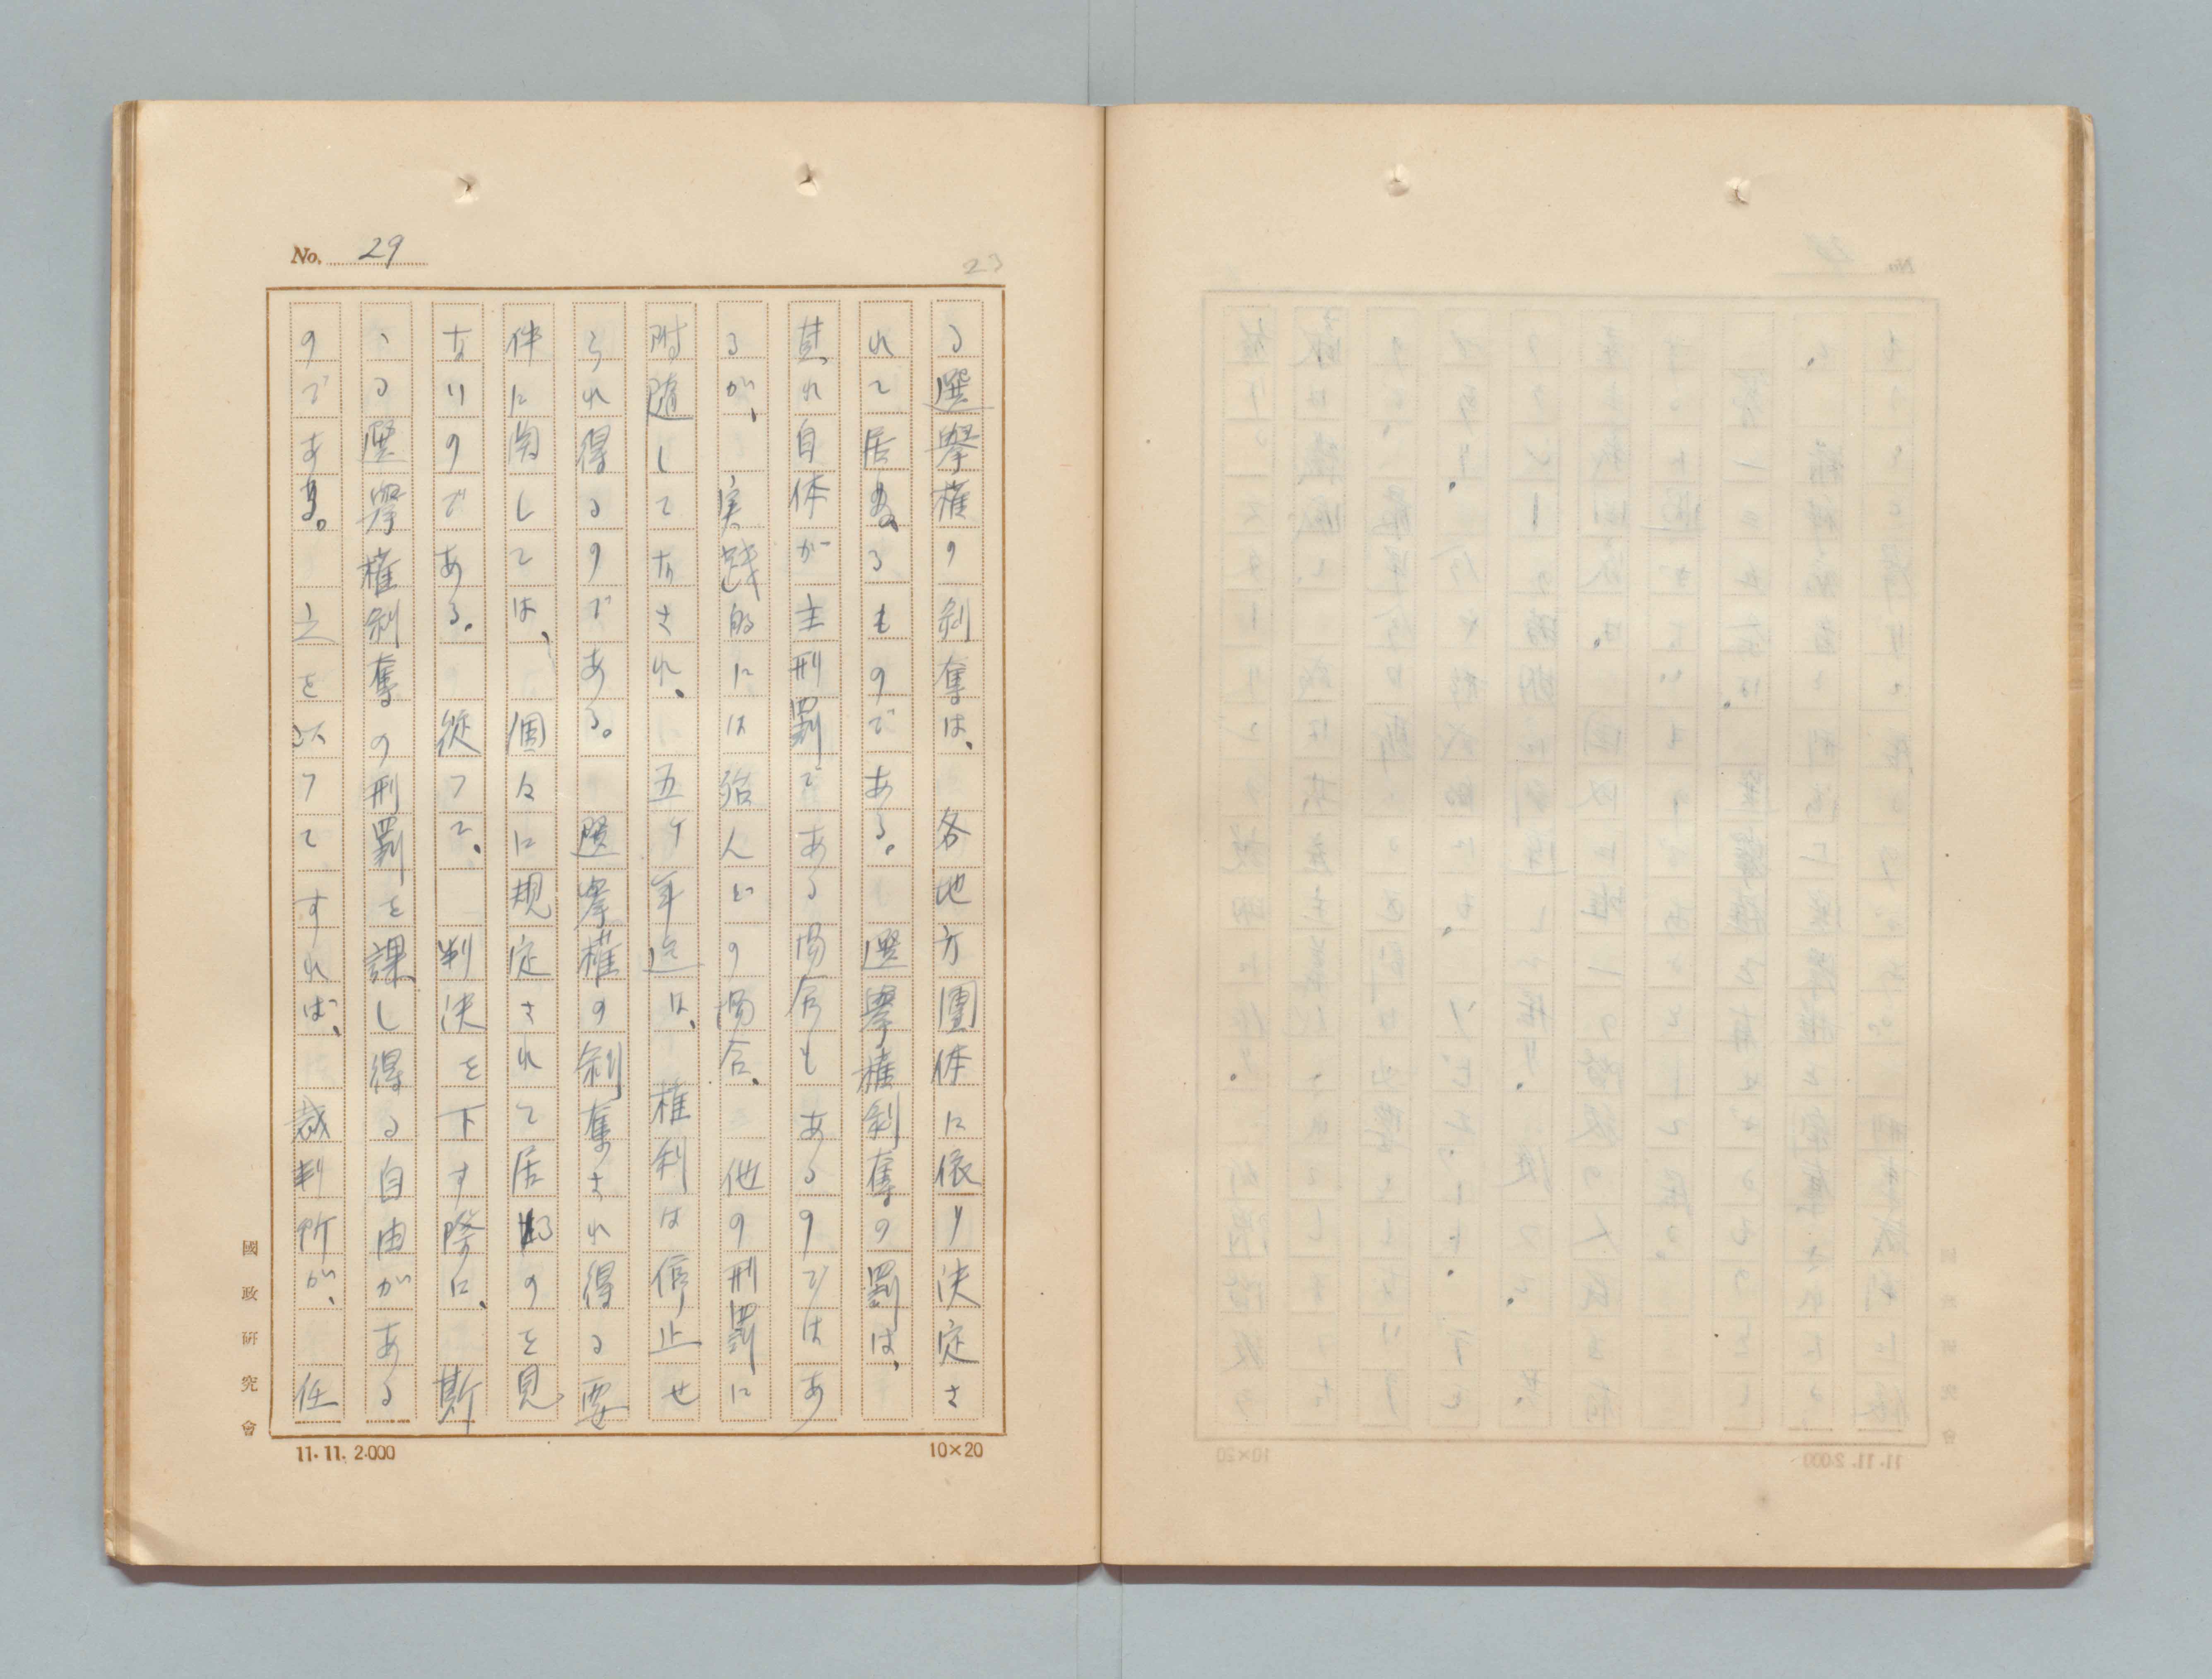 No. 29
23
る選擧権の剝奪は、各地方團体に依り決定さ
れて居るものである。選擧権剝奪の罰は、
其れ自体が主刑罰である場合もあるのではあ
るが、実践的には殆んどの場合、他の刑罰に
附随してなされ、五ヶ年迄は、権利は停止せ
られ得るのである。選擧権の剝奪され得る要
件に関しては、個々に規定されて居るのを見
ないのである。従つて、判決を下す際に、斯
ゝる選擧権剝奪の刑罰を課し得る自由がある
のである。之を以つてすれば、裁判所が、任
國政研究會
11.11.2.000
10×20